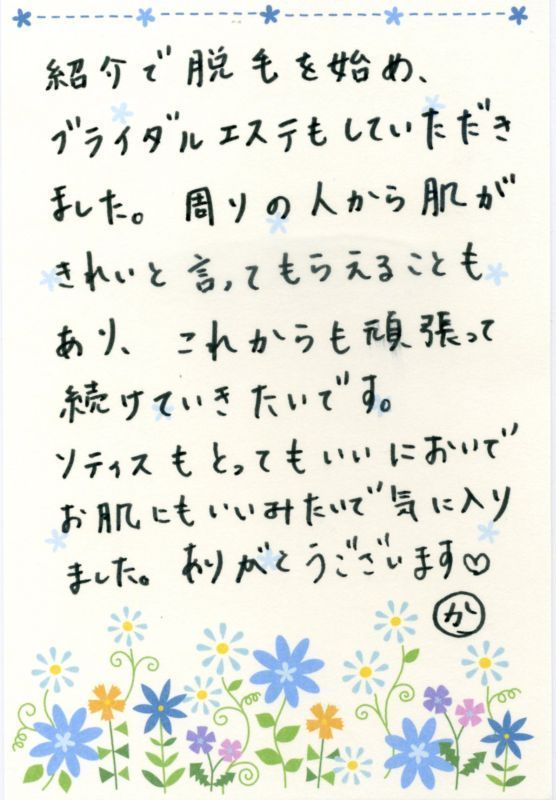 紹介で脱毛を始め、
ブライダルエステもしていただき
ました。周りの人から肌が
きれいと言ってもらえることも
あり、これからも頑張って
続けていきたいです。
ソティスもとってもいいにおいで
お肌にもいいみたいで気に入り
ました。ありがとうございます♡
か